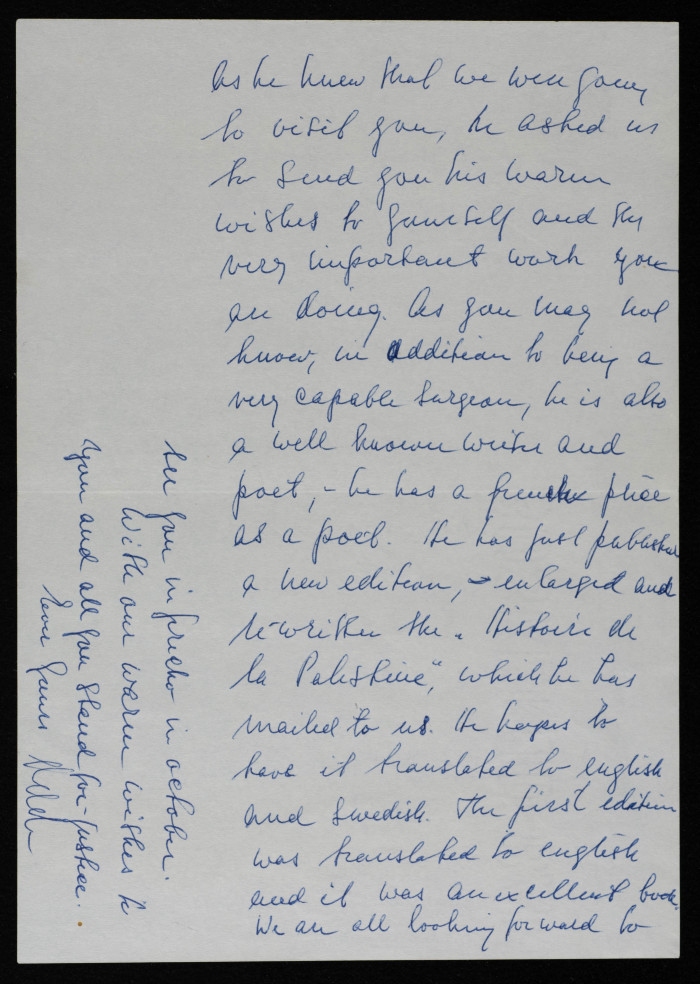 As he knew that we were going
to visit you, he asked us
to send you his warm
wishes to yourself and the
very important work you
are doing. As you may not
know, in addition to being a
very capable surgeon, he is also
a well known writer and
poet, - he has a french price
as a poet. He has just published
a new edition, - enlarged and
re-written the "Histoire de
la Palestine", which he has
mailed to us. He hopes to
have it translated to english
and swedish. The first edition
was translated to english
and it was an excellent book.
We are all looking forward to
see you in Jericho in october.
With our warm wishes to
you and all you stand for - justice.
Yours